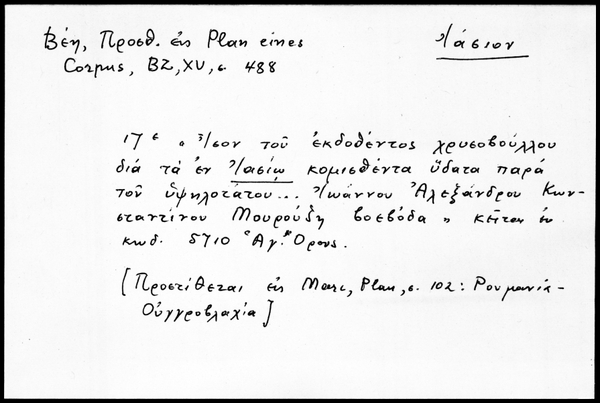 Βέη, Προσθ. εἰς Plan eines
Corpus, BZ, XV, σ. 488
Ἰάσιον
17 ε " Ἴσον τοῦ ἐκδοθέντος χρυσοβούλλου
διὰ τὰ ἐν Ἰασίῳ κομισθέντα ὕδατα παρὰ
τοῦ ὑψηλοτάτου... Ἰωάννου Ἀλεξάνδρου Κων-
σταντίνου Μουρούζη βοεβόδα " κεῖται ἐν
κωδ. 5710 Ἁγ. Ὄρους.
[Προστίθεται εἰς Marc, Plan, σ. 102: Ρουμανία-
Οὑγγροβλαχία]